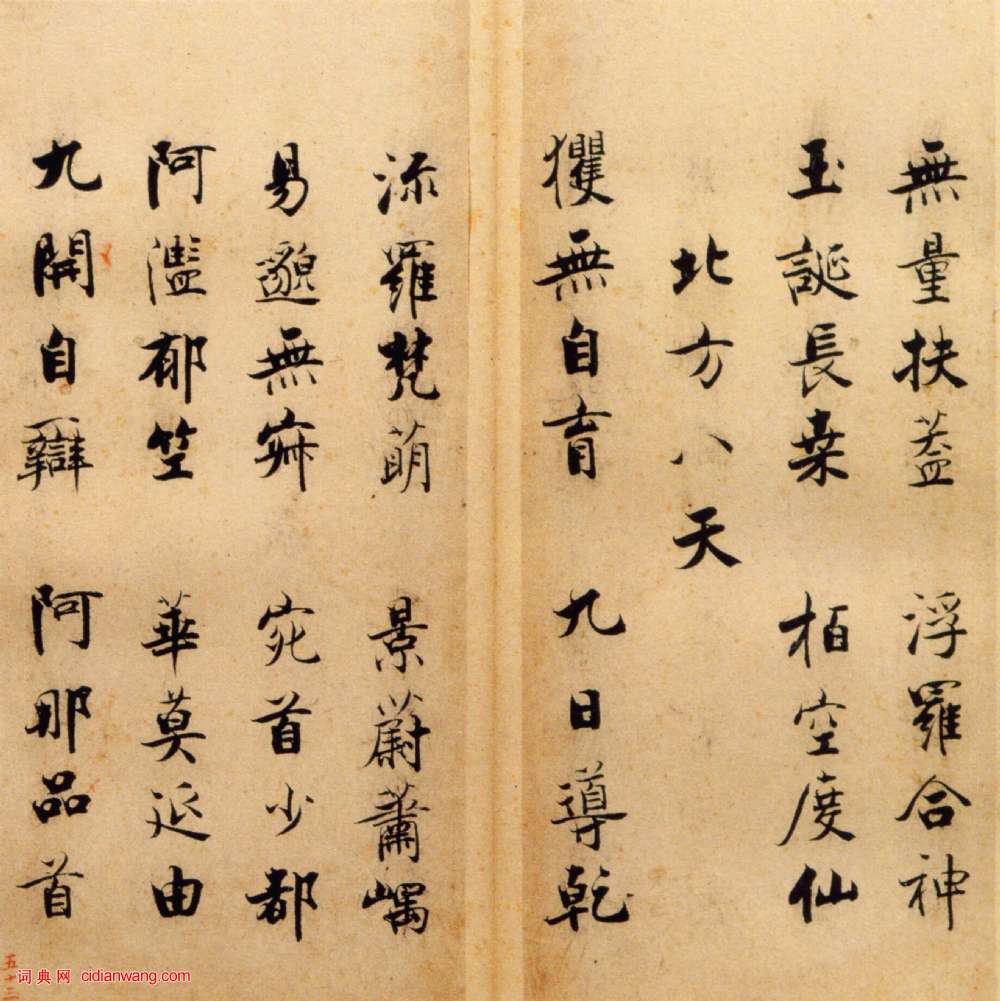 無量扶蓋 浮羅合神
玉誕長桑 栢空度仙
北方八天
玃無自育 九日導乾
添羅梵萌 景蔚蕭嵎
易邈無寂 宛首少都
阿濫郁竺 華莫延由
九開自辯 阿那品首
五十三
词典网 cidianwang.com